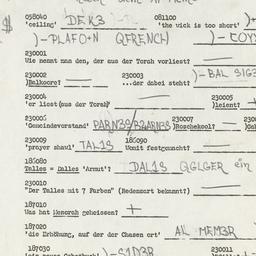 058040 081100
'ceiling' DEK3 'the wick is too short'
)-PLAFO+N QFRENCH)
230001
Wie nennt man den, der aus der Torah vorliest?
230002 230003 )-BAL
)Balkoore? ...der dabei steht?
230004 230005
'er liest (aus der Torah)' )leient? +
230006 230007
'Gemeindevorstand' PARN3S/ )Roschekool?
230009 186090
'prayer shawl' TAL1S Womit festgemacht?
186080
Talles = Dalles 'Armut'? DAL1S QGLGER ein
230010
"Der Talles mit 7 Farben" (Redensart bekannt?)
187010
Was hat Menorah geheissen? +
187020
'die Erhöhung, auf der der Chasen ort' AL MEM3R
187030 230011
)-S1D3R